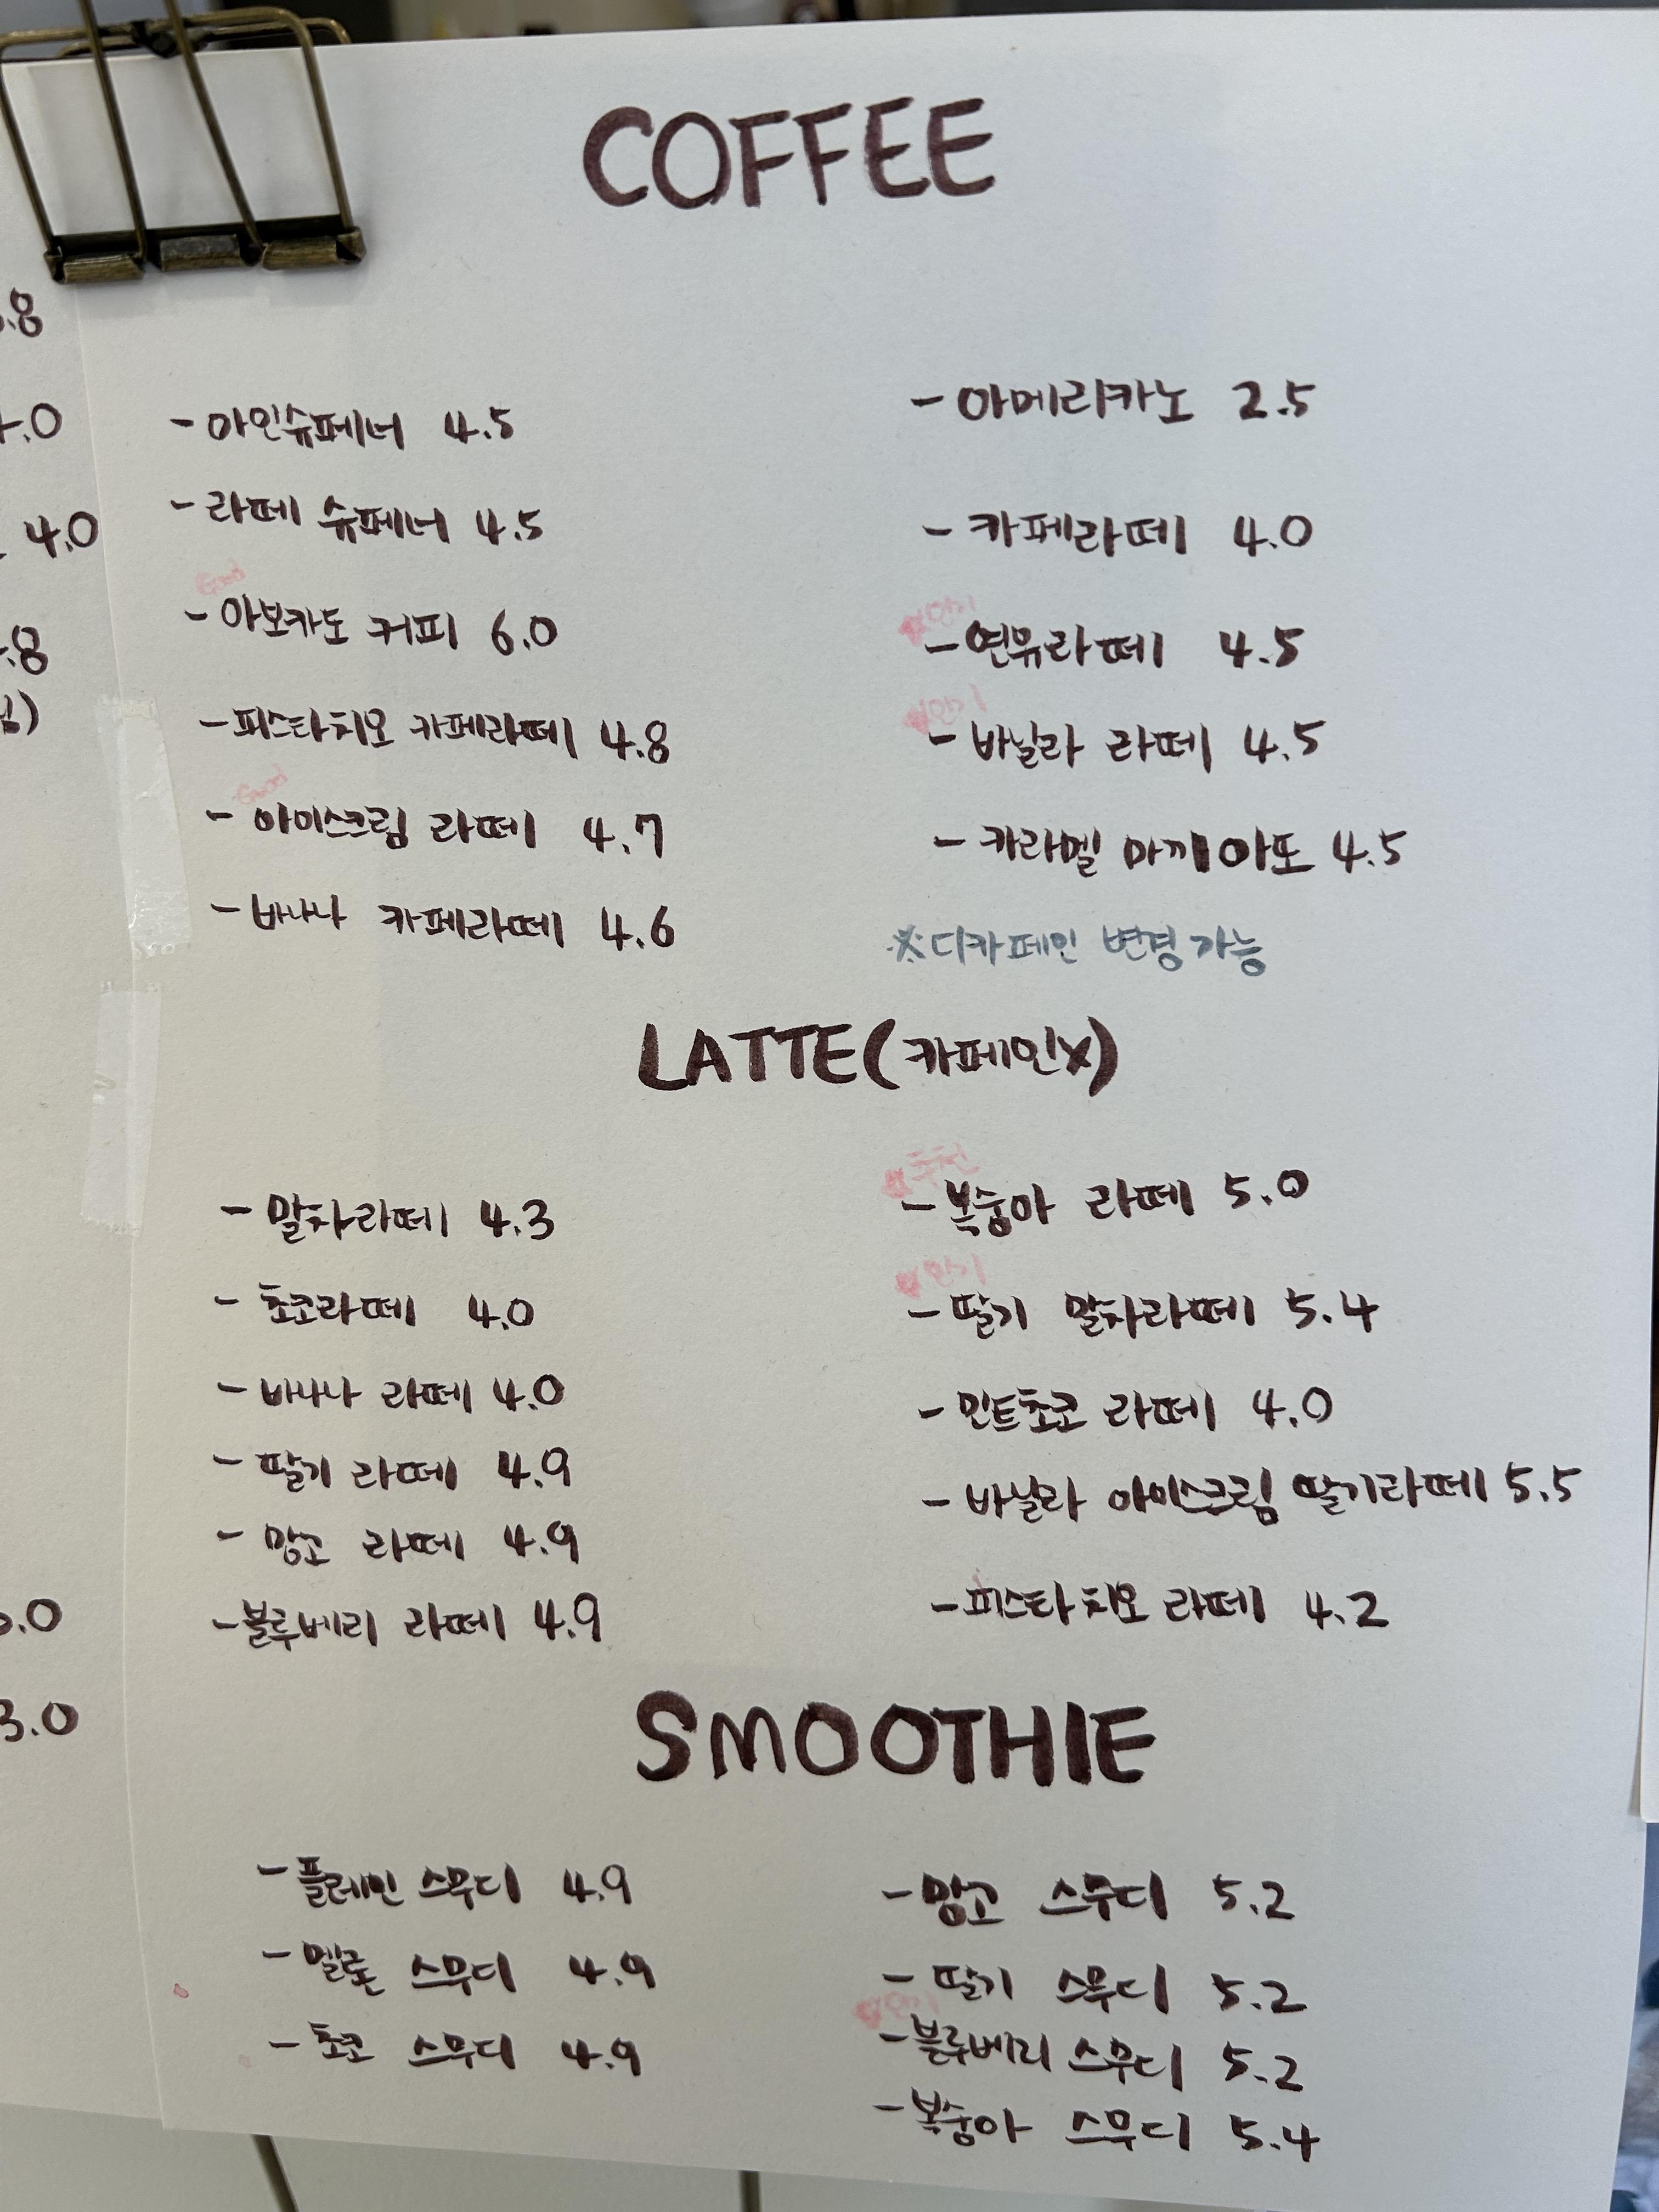 COFFEE
- 아인슈페너 4.5
- 라떼 슈페너 4.5
Good
- 아보카도 커피 6.0
- 피스타치오 카페라떼 4.8
Good
- 아이스크림 라떼 4.7
- 바나나 카페라떼 4.6
- 아메리카노 2.5
- 카페라떼 4.0
인기
- 연유라떼 4.5
인기
- 바닐라 라떼 4.5
- 카라멜 마끼아또 4.5
※디카페인 변경 가능
LATTE(카페인X)
- 말차라떼 4.3
- 초코라떼 4.0
- 바나나 라떼 4.0
- 딸기 라떼 4.9
- 망고 라떼 4.9
- 블루베리 라떼 4.9
추천
- 복숭아 라떼 5.0
인기
- 딸기 말차라떼 5.4
- 민트초코 라떼 4.0
- 바닐라 아이스크림 딸기라떼 5.5
- 피스타치오 라떼 4.2
SMOOTHIE
- 플레인 스무디 4.9
- 멜론 스무디 4.9
- 초코 스무디 4.9
- 망고 스무디 5.2
- 딸기 스무디 5.2
인기
- 블루베리 스무디 5.2
- 복숭아 스무디 5.4
.8
4.0
.8
.0
3.0